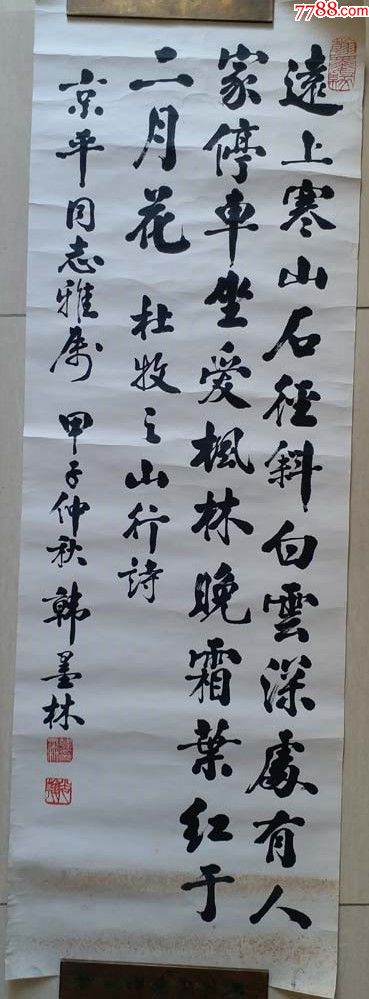 7788.com
遠上寒山石徑斜白雲深處有人
家停車坐愛楓林晚霜葉红于
二月花
杜牧之山行詩
京平同志雅属 甲子仲秋 韩墨林